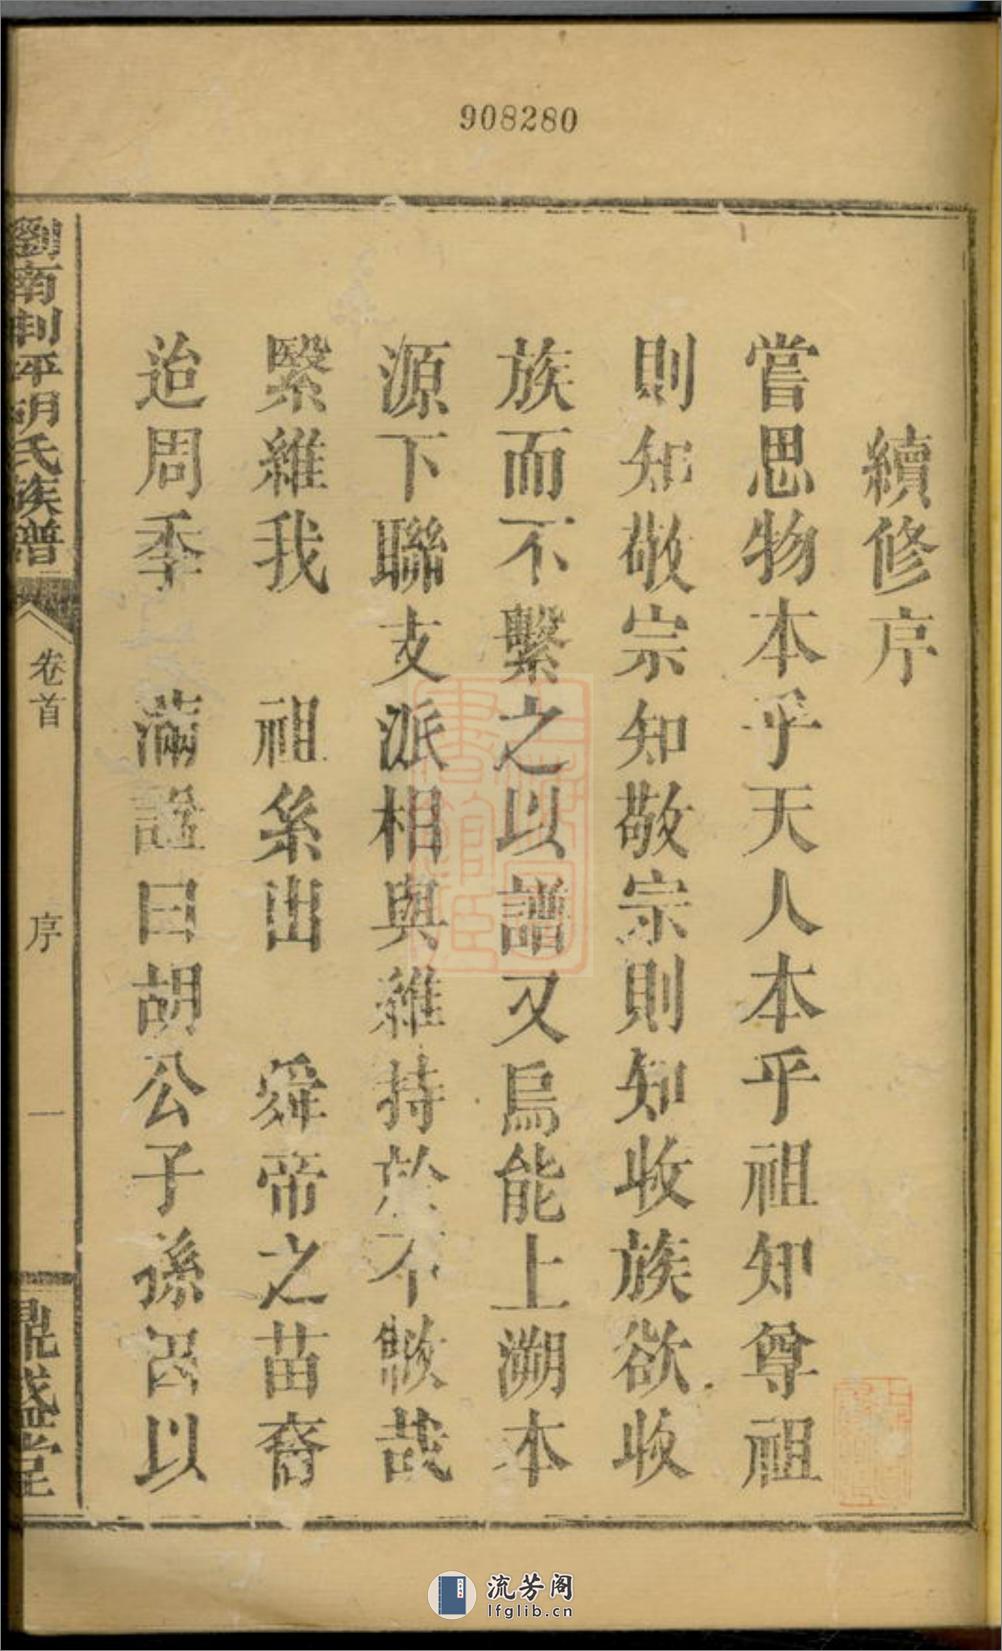 908280
續修序
嘗思物本乎天人本乎祖知尊祖
則知敬宗知敬宗則知收族欲收
族而不繫之以譜又烏能上溯本
源下聯支派相與維持於不敝哉
繄維我 祖系出 舜帝之苗裔
迨周季 滿諡曰胡公子孫因以
瀏南 坪胡氏族譜
卷首
序
一
鼎盛堂
流芳阁
lfglib.cn